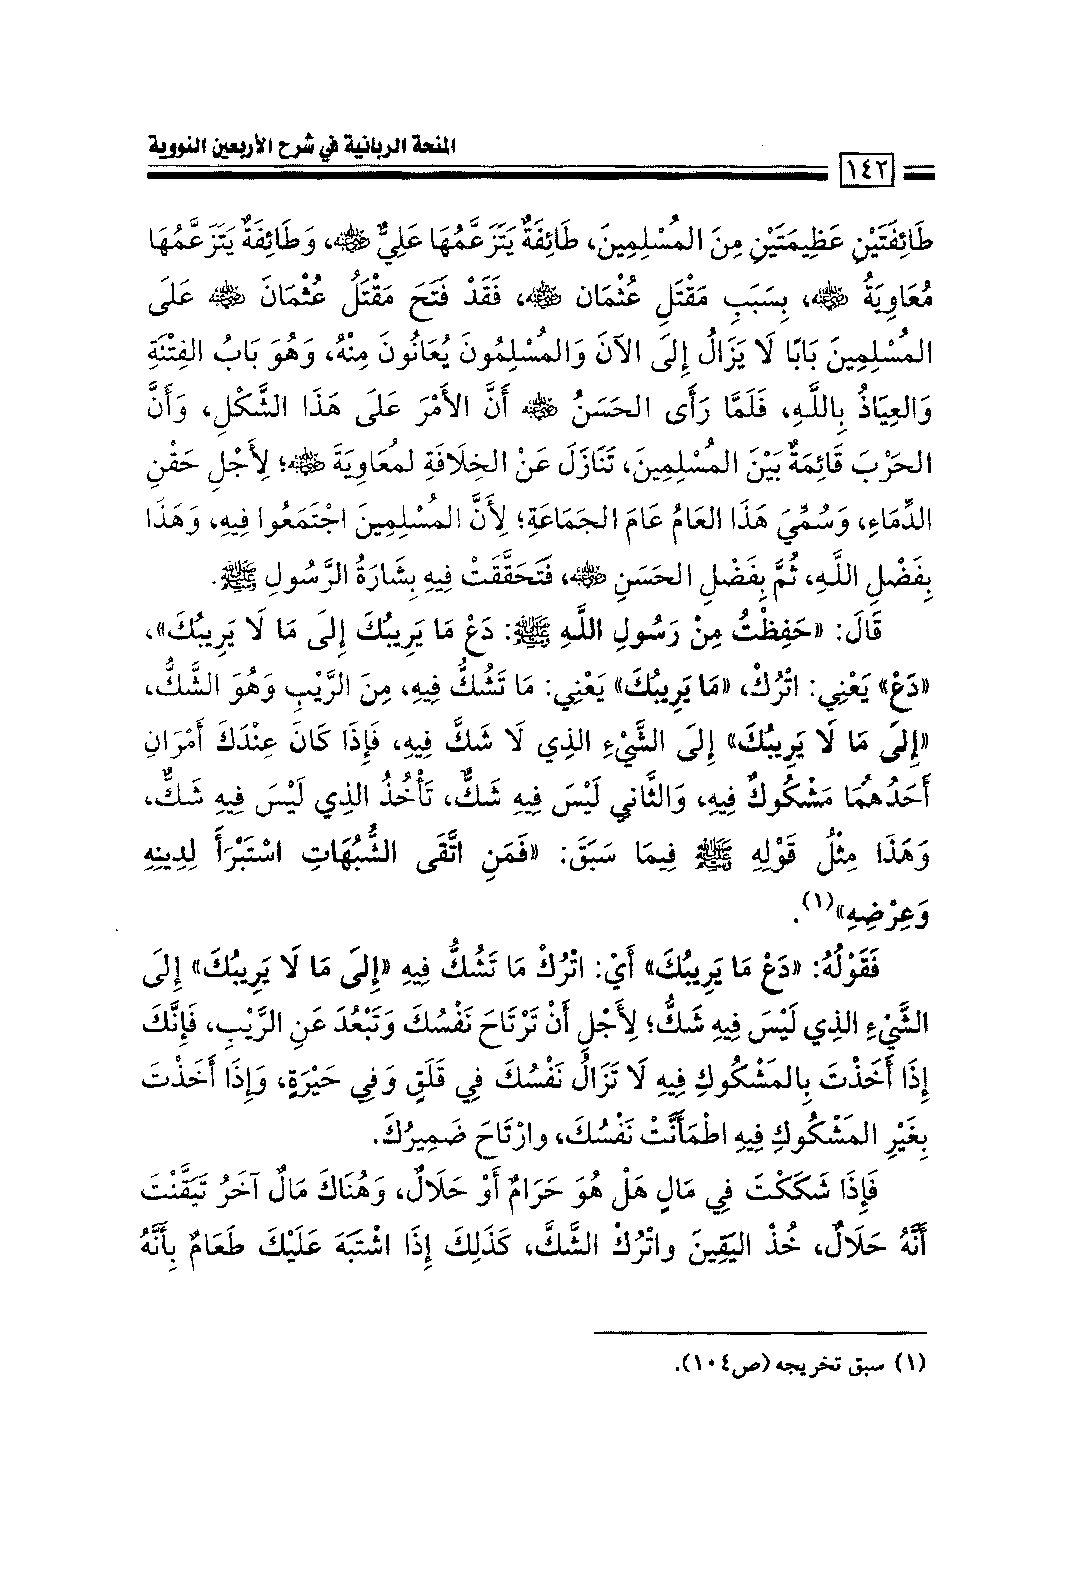 المنحة الربانية في شرح الأربعين النووية
١٤٢
طَائِفَتَيْنِ عَظِيمَتَيْنِ مِنَ المُسْلِمِينَ، طَائِفَةٌ يَتَزَعَّمُهَا عَلِيٌّ رضي الله عنه، وَطَائِفَةٌ يَتَزَعَّمُهَا
مُعَاوِيَةُ رضي الله عنه، بِسَبَبِ مَقْتَلِ عُثْمَان رضي الله عنه، فَقَدْ فَتَحَ مَقْتَلُ عُثْمَانَ رضي الله عنه عَلَى
المُسْلِمِينَ بَابًا لَا يَزَالُ إِلَى الآنَ وَالمُسْلِمُونَ يُعَانُونَ مِنْهُ، وَهُوَ بَابُ الفِتْنَةِ
وَالعِيَاذُ بِاللَّهِ، فَلَمَّا رَأَى الحَسَنُ رضي الله عنه أَنَّ الأَمْرَ عَلَى هَذَا الشَّكْلِ، وَأَنَّ
الحَرْبَ قَائِمَةٌ بَيْنَ المُسْلِمِينَ، تَنَازَلَ عَنْ الخِلَافَةِ لمُعَاوِيَةَ رضي الله عنه؛ لِأَجْلِ حَقْنِ
الدِّمَاءِ، وَسُمِّيَ هَذَا العَامُ عَامَ الجَمَاعَةِ؛ لِأَنَّ المُسْلِمِينَ اجْتَمَعُوا فِيهِ، وَهَذَا
بِفَضْلِ اللَّهِ، ثُمَّ بِفَضْلِ الحَسَنِ رضي الله عنه، فَتَحَقَّقَتْ فِيهِ بِشَارَةُ الرَّسُولِ ﷺ.
قَالَ: «حَفِظْتُ مِنْ رَسُولِ اللَّهِ ﷺ: دَعْ مَا يَرِيبُكَ إِلَى مَا لَا يَرِيبُكَ»،
«دَعْ» يَعْنِي: اتْرُكْ، «مَا يَرِيبُكَ» يَعْنِي: مَا تَشُكُّ فِيهِ، مِنَ الرَّيْبِ وَهُوَ الشَّكُّ،
«إِلَى مَا لَا يَرِيبُكَ» إِلَى الشَّيْءِ الذِي لَا شَكَّ فِيهِ، فَإِذَا كَانَ عِنْدَكَ أَمْرَانِ
أَحَدُهُمَا مَشْكُوكٌ فِيهِ، وَالثَّانِي لَيْسَ فِيهِ شَكٌّ، تَأْخُذُ الذِي لَيْسَ فِيهِ شَكٌّ،
وَهَذَا مِثْلُ قَوْلِهِ ﷺ فِيمَا سَبَقَ: «فَمَنِ اتَّقَى الشُّبُهَاتِ اسْتَبْرَأَ لِدِينِهِ
وَعِرْضِهِ»(١).
فَقَوْلُهُ: «دَعْ مَا يَرِيبُكَ» أَيْ: اتْرُكْ مَا تَشُكُّ فِيهِ «إِلَى مَا لَا يَرِيبُكَ» إِلَى
الشَّيْءِ الذِي لَيْسَ فِيهِ شَكٌّ؛ لِأَجْلِ أَنْ تَرْتَاحَ نَفْسُكَ وَتَبْعُدَ عَنِ الرَّيْبِ، فَإِنَّكَ
إِذَا أَخَذْتَ بِالمَشْكُوكِ فِيهِ لَا تَزَالُ نَفْسُكَ فِي قَلَقٍ وَفِي حَيْرَةٍ، وَإِذَا أَخَذْتَ
بِغَيْرِ المَشْكُوكِ فِيهِ اطْمَأَنَّتْ نَفْسُكَ، وارْتَاحَ ضَمِيرُكَ.
فَإِذَا شَكَكْتَ فِي مَالٍ هَلْ هُوَ حَرَامٌ أَوْ حَلَالٌ، وَهُنَاكَ مَالٌ آخَرُ تَيَقَّنْتَ
أَنَّهُ حَلَالٌ، خُذْ اليَقِينَ واتْرُكْ الشَّكَّ، كَذَلِكَ إِذَا اشْتَبَهَ عَلَيْكَ طَعَامٌ بِأَنَّهُ
(١) سبق تخريجه (ص١٠٤).